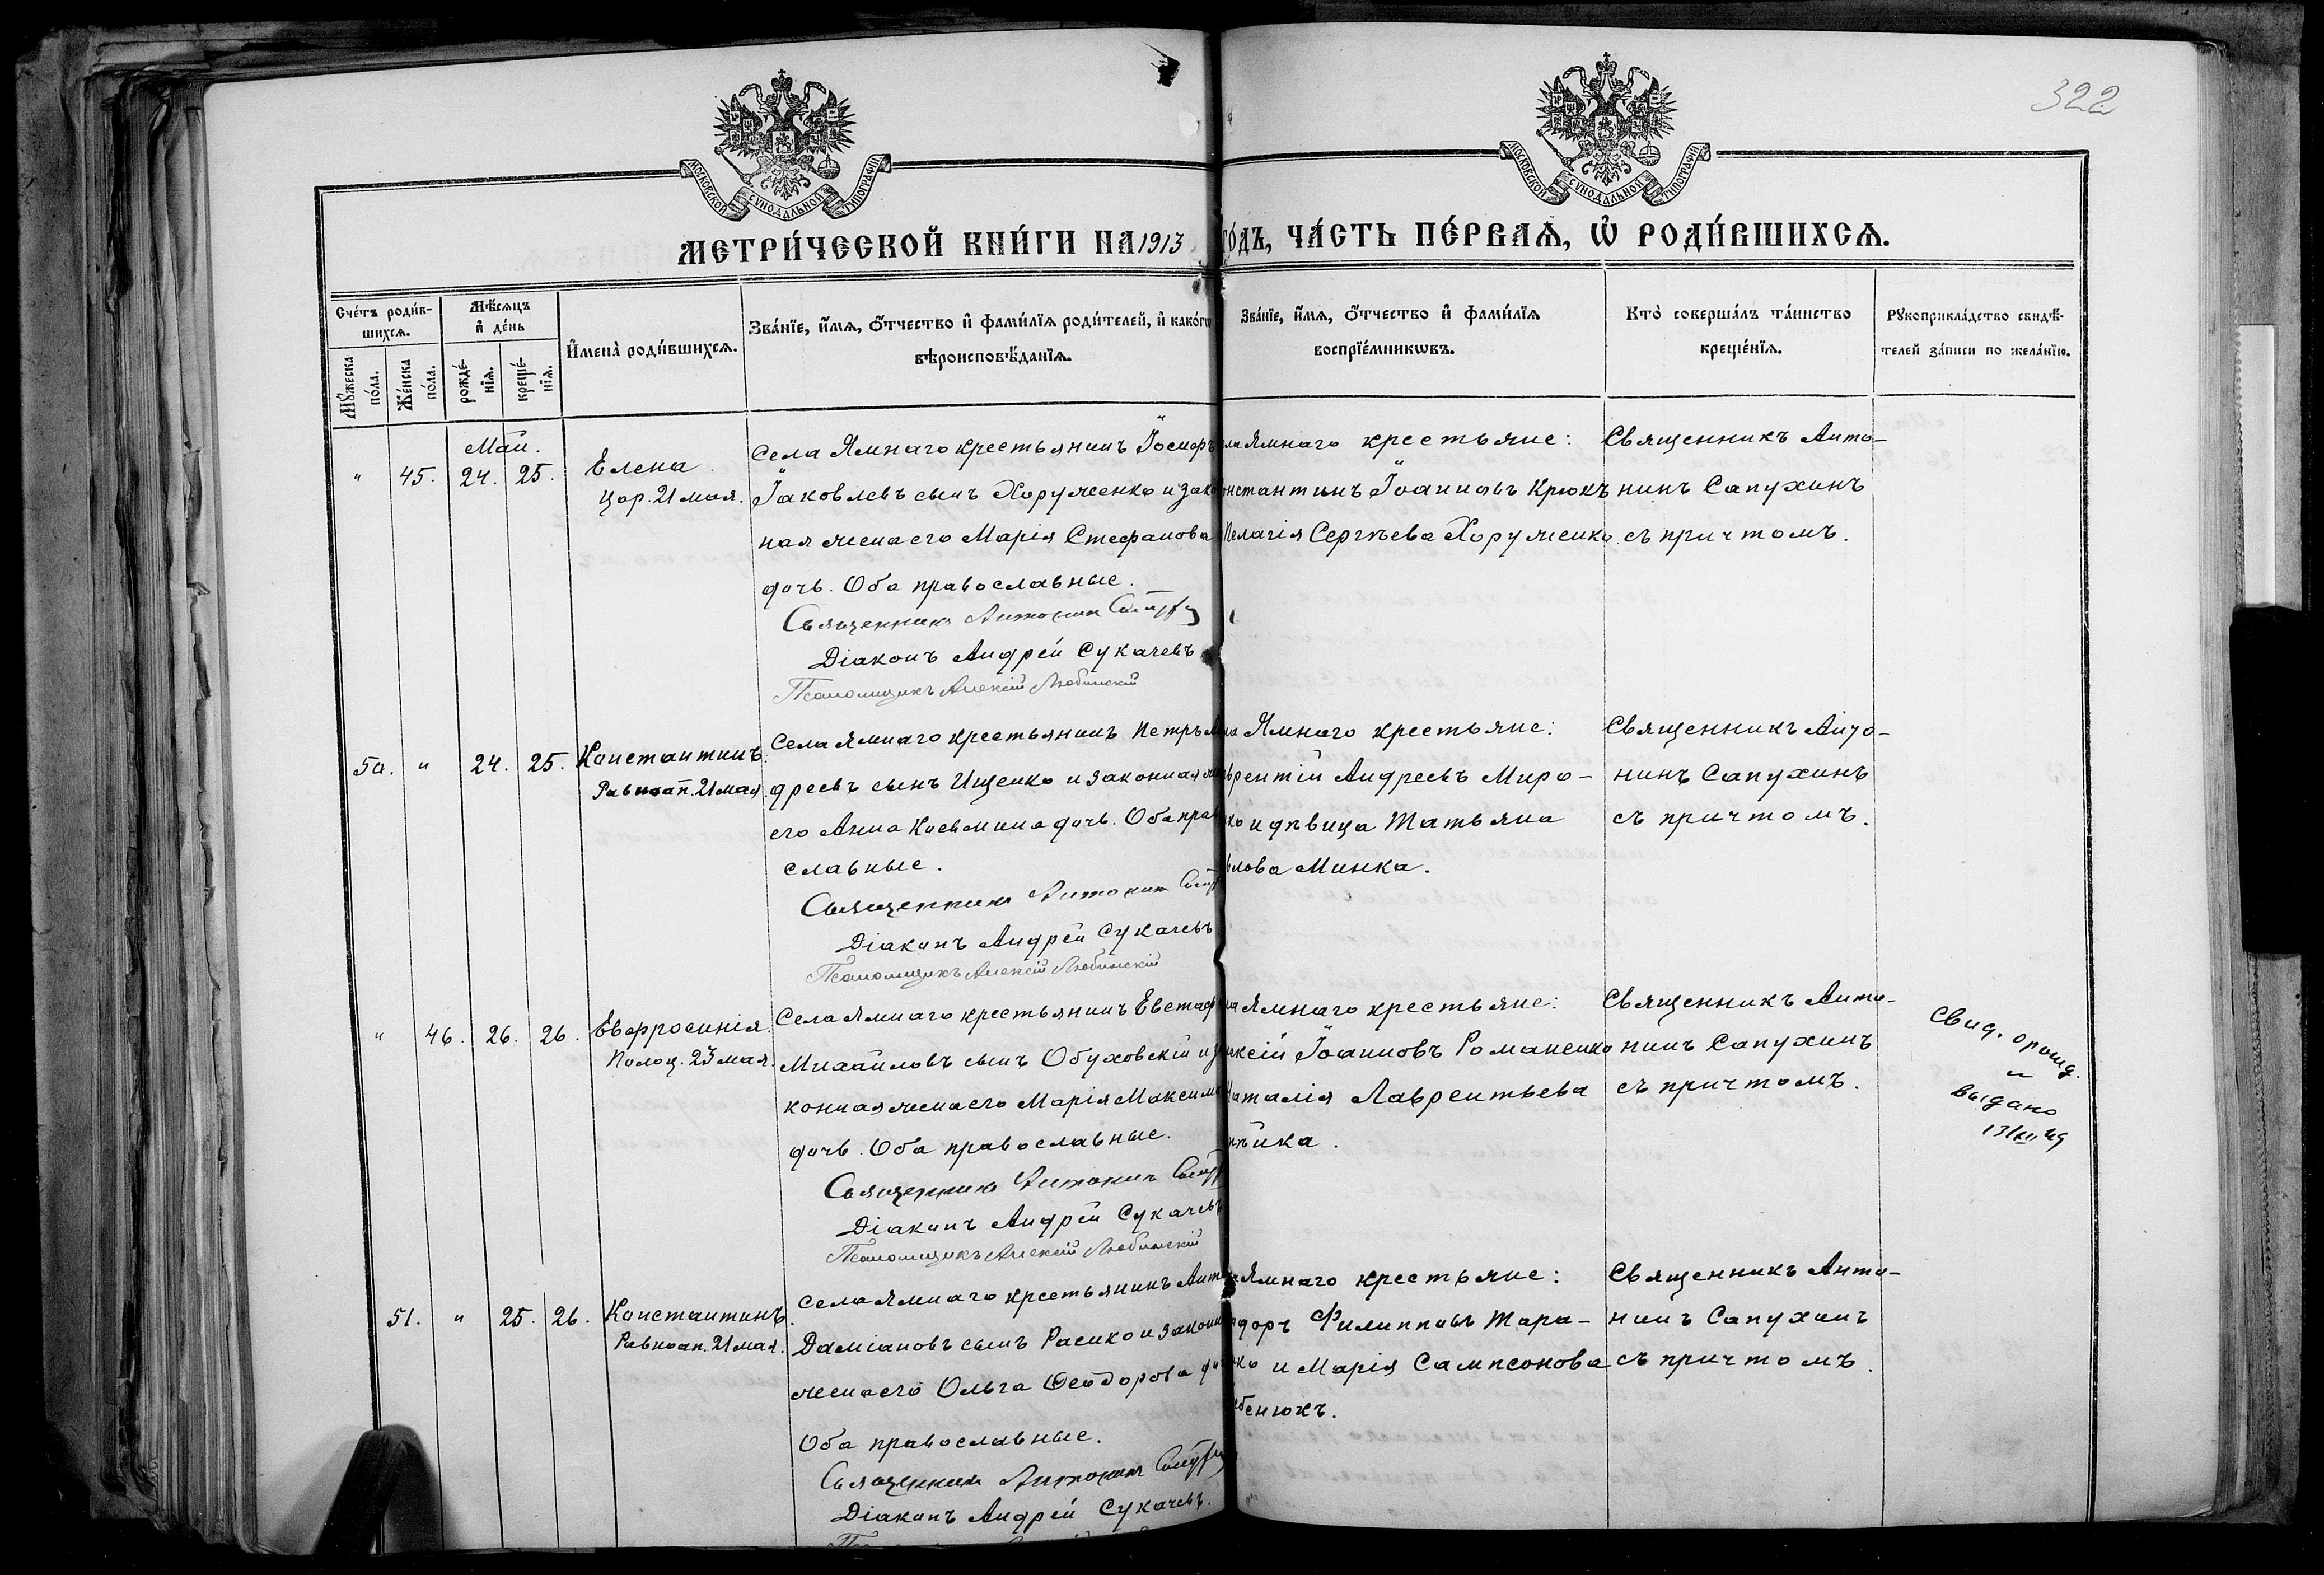 322
МОСКОВСКОЙ СУНОДАЛЬНОЙ ТИПОГРАФІИ
МОСКОВСКОЙ СУНОДАЛЬНОЙ ТИПОГРАФІИ
МЕТРИ́ЧЕСКОЙ КНИ́ГИ НА 1913 ГО́ДЪ, ЧА́СТЬ ПЕ́РВАѦ, Ѡ҆ РОДИ́ВШИХСѦ.
Сче́тъ роди́вшихсѧ.
Мꙋ́жеска по́ла.
Же́нска по́ла.
Мѣ́сѧцъ и҆ де́нь
рожде́нїѧ.
креще́нїѧ.
И҆мена̀ роди́вшихсѧ.
Зва́нїе, и҆́мѧ, ѻ҆́тчество и҆ фами́лїѧ роди́телей, и҆ како́гѡ
вѣроисповѣ́данїѧ.
Зва́нїе, и҆́мѧ, ѻ҆́тчество и҆ фами́лїѧ
воспрїе́мникѡвъ.
Кто̀ соверша́лъ та́инство
креще́нїѧ.
Рꙋкоприкла́дство свидѣ́-
телей за́писи по жела́нїю.
Май.
" 45. 24. 25.
Елена
цар. 21 мая.
Села Ямнаго крестьянинъ Іосифъ
Іаковлевъ сынъ Хоруженко и зако
ная жена его Марія Стефанова
дочь. Оба православные.
Священникъ Антонин
Діаконъ Андрей Сукачевъ
Псаломщикъ Алексій Любинскій
Ямнаго крестьяне:
Константинъ Іоанновъ Крюкъ
Пелагія Сергѣева Хоруженко
Священникъ Анто-
нинъ Сапухинъ
съ причтомъ.
50. " 24. 25.
Константинъ.
Равноап. 21 мая.
Села Ямнаго крестьянинъ Петръ Ан
дреевъ сынъ Ищенко и законная
его Анна Косьмина дочь. Оба прав
славные.
Священникъ Антонин
Діаконъ Андрей Сукачевъ
Псаломщикъ Алексій Любинскій
Ямнаго крестьяне:
врентій Андреевъ Миро-
ко и дѣвица Татьяна
Минка.
Священникъ Анто-
нинъ Сапухинъ
съ причтомъ.
" 46. 26. 26.
Евфросинія.
Полоц. 23 мая.
Села Ямнаго крестьянинъ Евстаф
Михайловъ сынъ Обуховскій и з
конная жена его Марія Максимо
дочь. Оба православные.
Священникъ Антонин
Діаконъ Андрей Сукачевъ
Псаломщикъ Алексій Любинскій
Ямнаго крестьяне:
ксій Іоанновъ Романенко
Наталія Лаврентьева
ѣйка.
Священникъ Анто-
нинъ Сапухинъ
съ причтомъ.
Свид. о рожд.
и
выдано
51. " 25. 26.
Константинъ.
Равноап. 21 мая.
Села Ямнаго крестьянинъ Ант
Даміановъ сынъ Расико и законн
жена его Ольга Ѳеодорова до
Оба православные.
Священникъ Антонин
Діаконъ Андрей Сукачевъ.
Ямнаго крестьяне:
доръ Филипповъ Тара-
ко и Марія Сампсонова
бенюкъ.
Священникъ Анто-
нинъ Сапухинъ
съ причтомъ.